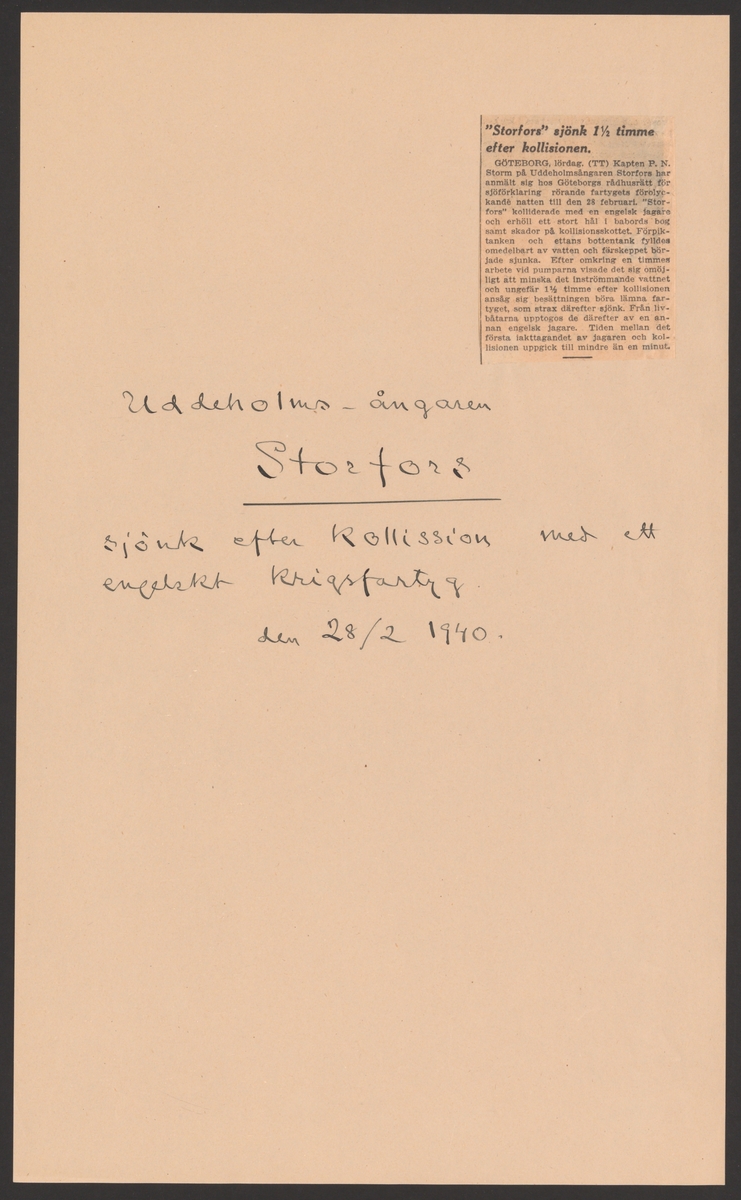 "Storfors" sjönk 1½ timme
efter kollisionen.
GÖTEBORG, lördag. (TT) Kapten P. N.
Storm på Uddeholmsångaren Storfors har
anmält sig hos Göteborgs rådhusrätt för
sjöförklaring rörande fartygets förolyc-
kande natten till den 28 februari. "Stor-
fors" kolliderade med en engelsk jagare
och erhöll ett stort hål i babords bog
samt skador på kollisionsskottet. Förpik-
tanken och ettans bottentank fylldes
omedelbart av vatten och färskeppet bör-
jade sjunka. Efter omkring en timmes
arbete vid pumparna visade det sig omöj-
ligt att minska det inströmmande vattnet
och ungefär 1½ timme efter kollisionen
ansåg sig besättningen böra lämna far-
tyget, som strax därefter sjönk. Från liv-
båtarna upptogos de därefter av en an-
nan engelsk jagare. Tiden mellan det
första iakttagandet av jagaren och kol-
lisionen uppgick till mindre än en minut.
Uddeholms - ångaren
Storfors
sjönk efter kollission med ett
engelskt krigsfartyg.
den 28/2 1940.